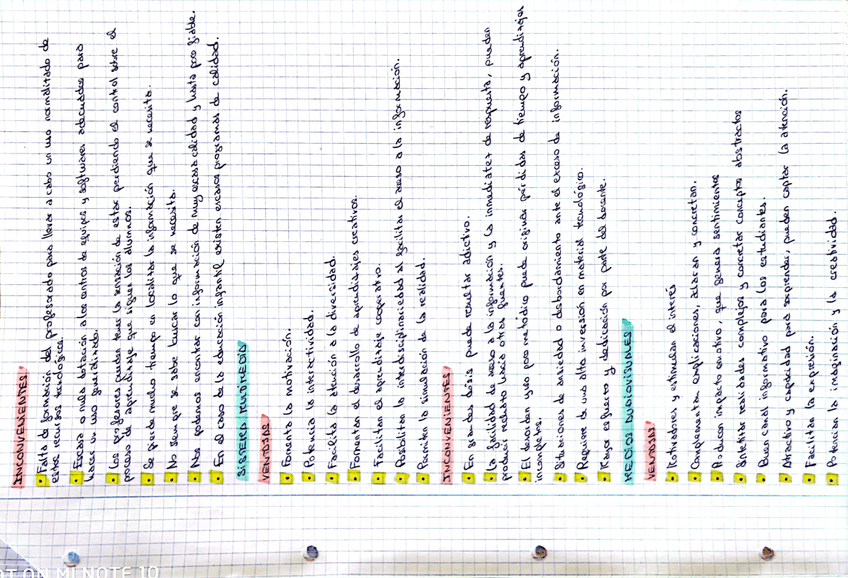 INCONVENIENTES
Falta de formación del profesorado para llevar a cabo un uso normalizado de
estos recursos tecnológicos.
Escasa o nula dotación a los centros de equipos y softwares adecuados para
hacer un uso generalizado.
Los profesores pueden tener la sensación de estar perdiendo el control sobre el
proceso de aprendizaje que siguen los alumnos.
Se pierde mucho tiempo en localizar la información que se necesita.
No siempre se sabe buscar lo que se necesita.
Nos podemos encontrar con información de muy escasa calidad y hasta poco fiable.
En el caso de la educación infantil existen escasos programas de calidad.
SISTEMA MULTIMEDIA
VENTAJAS
Fomenta la motivación.
Potencia la interactividad.
Facilita la atención a la diversidad.
Fomentar el desarrollo de aprendizajes creativos.
Facilitan el aprendizaje cooperativo.
Posibilitan la interdisciplinariedad al facilitar el acceso a la información.
Permiten la simulación de la realidad.
INCONVENIENTES
En grandes dosis puede resultar adictivo.
La facilidad de acceso a la información y la inmediatez de respuesta, pueden
producir rechazo hacia otras fuentes.
El desorden y uso poco metódico puede originar pérdidas de tiempo y aprendizajes
incompletos.
Situaciones de ansiedad o desbordamiento ante el exceso de información.
Requiere de una alta inversión en material tecnológico.
Mayor esfuerzo y dedicación por parte del docente.
MEDIOS AUDIOVISUALES
VENTAJAS
Motivadores y estimulan el interés
Complementan explicaciones, aclaran y concretan.
Producen impacto emotivo, que genera sentimientos
Sintetizar realidades complejas y concretar conceptos abstractos
Buen canal informativo para los estudiantes.
Atractivo y capacidad para sorprender, pueden captar la atención.
Facilitan la expresión.
Potencian la imaginación y la creatividad.
ON MI NOTE 10